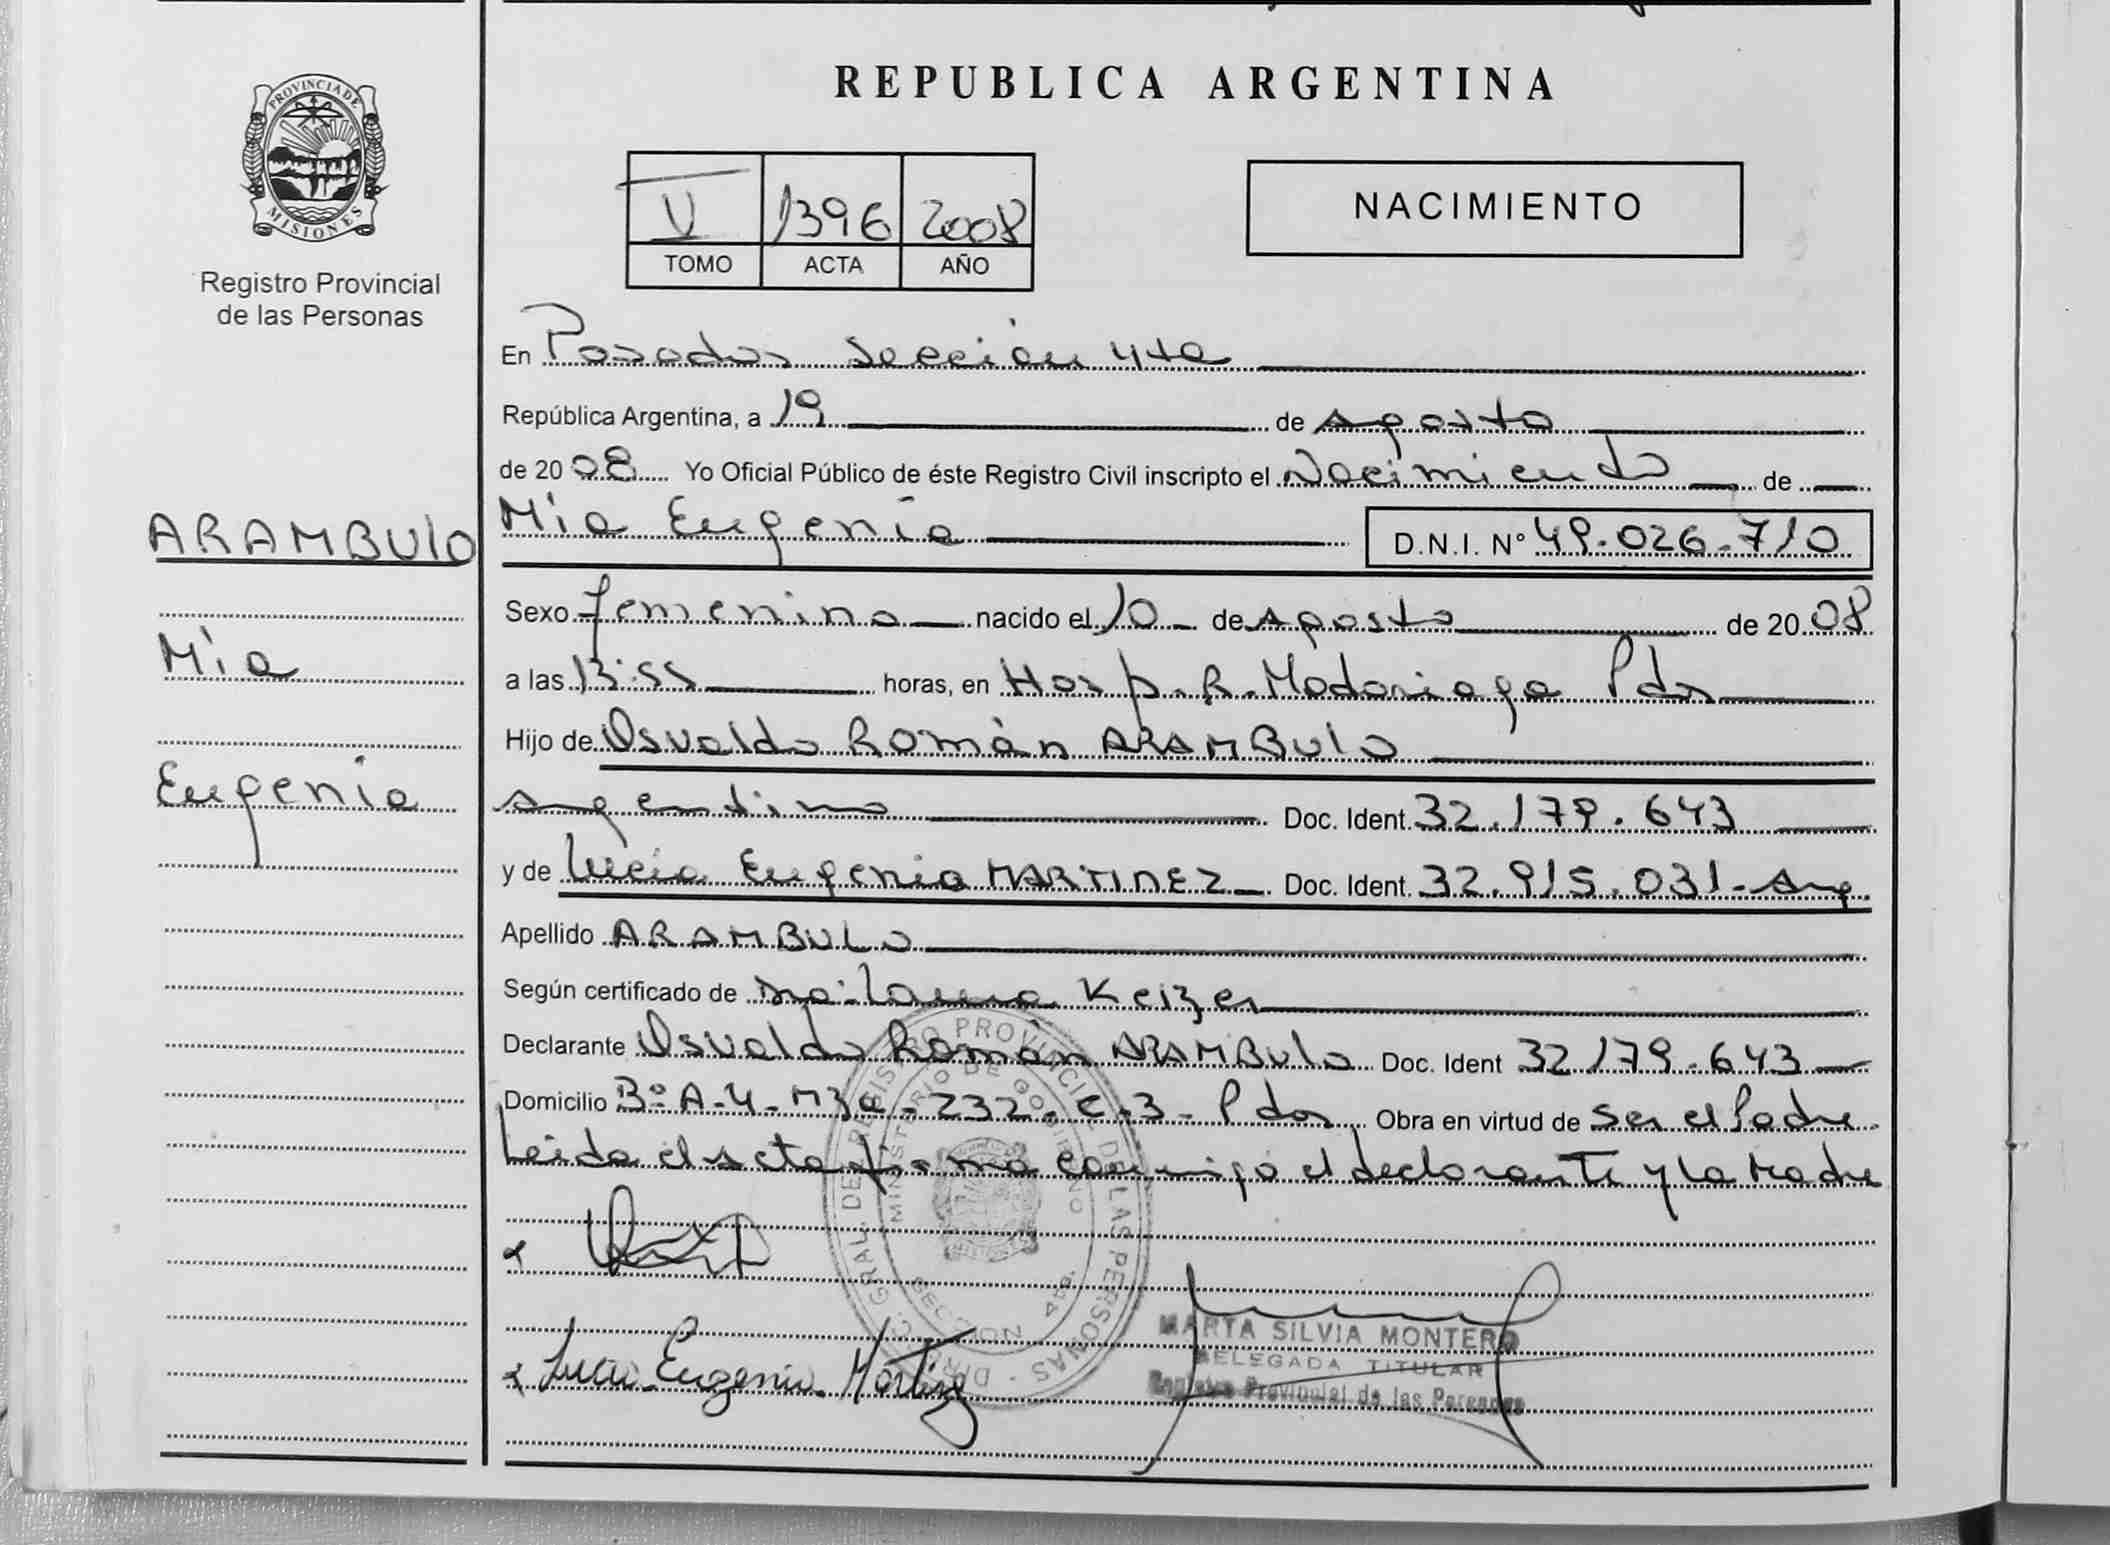 PROVINCIA DE
MISIONES
Registro Provincial
de las Personas
ARAMBULO
Mía
Eugenia
REPUBLICA ARGENTINA
V 1396 2008
TOMO ACTA AÑO
NACIMIENTO
En Posadas Sección 4ta
República Argentina, a 19 de Agosto
de 2008 Yo Oficial Público de éste Registro Civil inscripto el Nacimiento de
Mía Eugenia D.N.I. Nº 49.026.710
Sexo femenino nacido el 10 de Agosto de 2008
a las 13:55 horas, en Hosp. R. Madariaga Pdas
Hijo de Osvaldo Román ARAMBULO
argentino Doc. Ident. 32.179.643
y de Lucía Eugenia MARTINEZ Doc. Ident. 32.915.031 - Arg
Apellido ARAMBULO
Según certificado de Dra. Laura Keizer
Declarante Osvaldo Román ARAMBULO Doc. Ident 32179.643
Domicilio Bº A-4-Mza-232-C-3-Pdas Obra en virtud de Ser el Padre
Leída el acta firma conmigo el declarante y la Madre
DIREC. GRAL. DEL REGISTRO PROVINCIAL DE LAS PERSONAS
MINISTERIO DE GOBIERNO
SECCION 4ta.
Lucia Eugenia Martinez
MARTA SILVIA MONTERO
DELEGADA TITULAR
Registro Provincial de las Personas